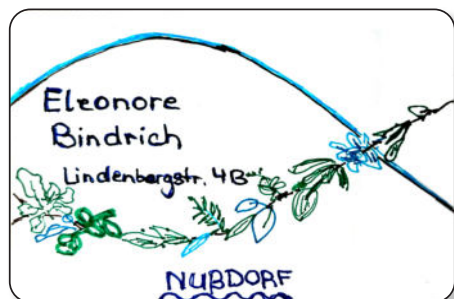 Eleonore
Bindrich
Lindenbergstr. 4B
NUßDORF